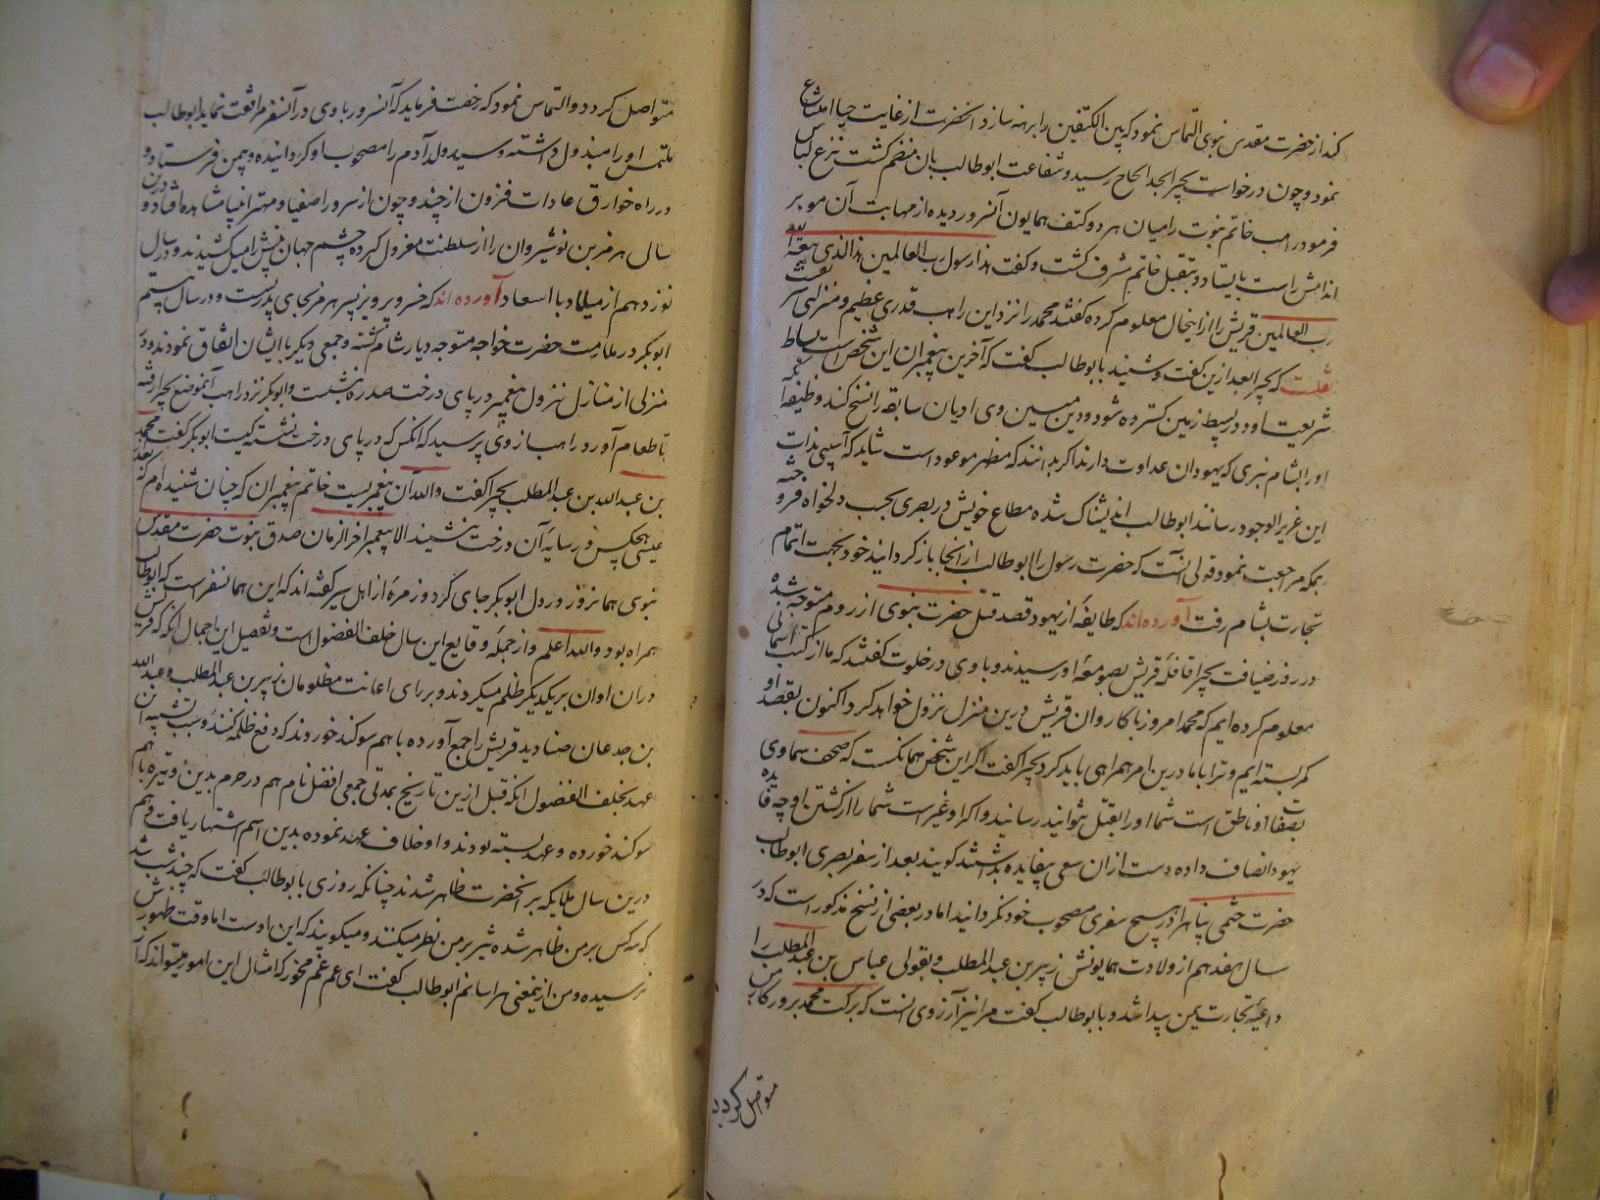 کند از حضرت مقدس نبوی التماس نمود که بین الکتفین را برهنه سازد آنحضرت از غایت حیا امتناع
نمود و چون درخواست بحیرا بحد الحاح رسید و شفاعت ابوطالب بان منضم کشت نزع لباس
فرمود راهب خاتم نبوت را میان هر دو کتف همایون آنسرور دیده از مهابت آن مو بر
اندامش راست بایستاد و بتقبیل خاتم مشرف کشت و کفت هذا رسول رب العالمین هذا الذی بعثه الله
رب العالمین قریش را از اینحال معلوم کرده کفتند محمد را نزد این راهب قدری عظیم و منزلتی است
نقلست که بحیرا بعد ازین کفت و شنید با ابوطالب کفت که آخرین پیغمبران این شخص است بساط
شریعت او در بسیط زمین کسترده شود و دین مبین وی ادیان سابقه را نسخ کند وظیفه آنکه
او را بشام نبری که یهودان عداوت دارند اکر بدانند که مظهر موعود است شاید که آسیبی بذات
این عزیز الوجود رسانند ابوطالب اندیشناک شده متاع خویش در بصری بحسب دلخواه فروخته
بمکه مراجعت نمود قولی آنست که حضرت رسول را ابوطالب از انجا باز کردانید خود بجهت اتمام
تجارت بشام رفت آورده اند که طایفه از یهود قصد قتل حضرت نبوی از روم متوجه شده
در روز ضیافت بحیرا قافله قریش بصومعه او رسیدند و با وی در خلوت کفتند که ما از کتب آسمانی
معلوم کرده ایم که محمد امروز با کاروان قریش درین منزل نزول خواهد کرد اکنون بقصد او
کمر بسته ایم و ترا با ما درین امر همراهی باید کرد بحیرا کفت اکر این شخص همانکست که صحف سماوی
بصفات او ناطق است شما او را بقتل نتوانید رسانید و اکر او غیر است شما را از کشتن او چه فایده
یهود انصاف داده دست ازان سعی بیفایده بداشتند کویند بعد از سفر بصری ابوطالب
حضرت ختمی پناه را در هیچ سفری مصحوب خود نکردانید اما در بعضی از نسخ مذکور است که در
سال هفدهم از ولادت همایونش زبیر بن عبد المطلب و بقولی عباس بن عبد المطلب را
داعیه تجارت یمن پیدا شد و با ابوطالب کفت مرا نیز آرزوی انست که برکت محمد بروزکار من
متواصل کردد
متواصل کردد و التماس نمود که رخصت فرماید که آنسرور با وی در آنسفر مرافقت نماید ابوطالب
ملتمس او را مبذول داشته و سید ولد آدم را مصحوب او کردانیده و بیمن فرستاد و
در راه خوارق عادات فزون از چند و چون از سرور اصفیا و مهتر انبیا مشاهده افتاد و درین
سال هرمز بن نوشیروان را از سلطنت معزول کرده چشم جهان بینش را میل کشیدند و در سال
نوزدهم از میلاد با اسعاد آورده اند که خسرو پرویز پسر هرمز بجای پدر نشست و در سال بیستم
ابوبکر در ملازمت حضرت خواجه متوجه دیار شام کشته و جمعی دیکر با ایشان اتفاق نمودند و در
منزلی از منازل نزول پیغمبر در پای درخت سدره بنشست و ابوبکر نزد راهب آنموضع بحیرا رفته
تا طعام آورد راهب از وی پرسید که آنکس که در پای درخت نشسته کیست ابوبکر کفت محمد
بن عبد الله بن عبد المطلب بحیرا کفت والله آن پیغمبریست خاتم پیغمبران که چنان شنیده ام که بعد
عیسی هیچکس در سایه آن درخت ننشیند الا پیغمبر اخر الزمان صدق نبوت حضرت مقدس
نبوی همانروز در دل ابوبکر جای کرد و زمره از اهل سیر کفته اند که این همانسفر است که ابوطالب
همراه بود والله اعلم و از جمله وقایع این سال حلف الفضول است و تفصیل این اجمال آنکه که قریش
دران اوان بر یکدیکر ظلم میکردند و برای اعانت مظلومان زبیر بن عبد المطلب و عبد الله
بن جدعان صنادید قریش را جمع آورده با هم سوکند خوردند که دفع ظلمه کنند و سبب تسمیه آن
عهد بحلف الفضول انکه قبل ازین تاریخ بمدتی جمعی افضل نام هم در حرم بدین وتیره با هم
سوکند خورده و عهد بسته بودند و او خلاف عهد نموده بدین اسم اشتهار یافت و هم
درین سال ملایکه بر آنحضرت ظاهر شدند چنانکه روزی با ابوطالب کفت که چند شب شد
که سه کس بر من ظاهر شده در من نظر میکنند و میکویند که این اوست اما وقت ظهورش
نرسیده و من ازینمعنی هراسانم ابوطالب کفت ای عم غم مخور که امثال این امور میتواند که از